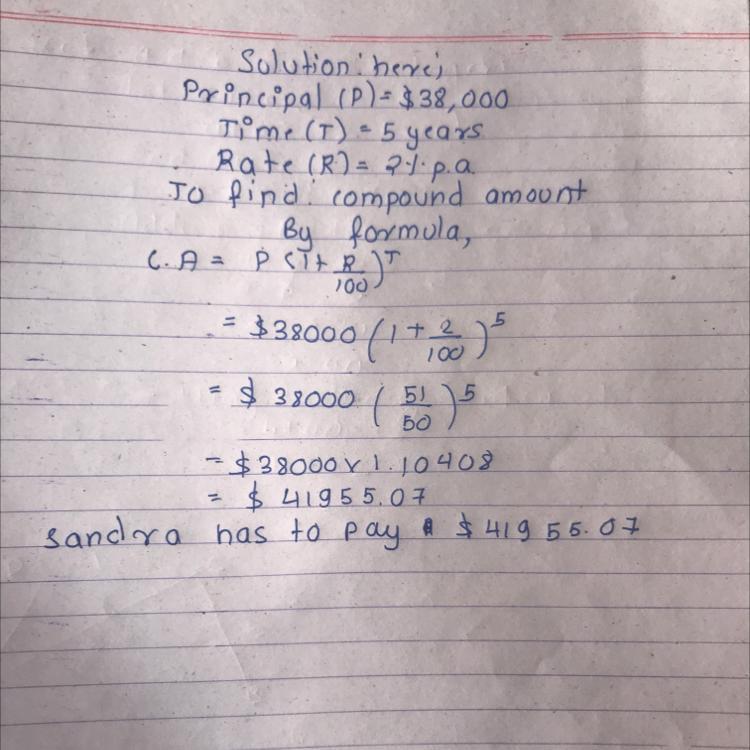 Solution: here;
Principal (P) = $38,000
Time (T) = 5 years
Rate (R) = 2%. p.a.
To find: compound amount
By formula,
C.A = P (1+ R/100)^T
= $38000 (1 + 2/100)^5
= $ 38000 (51/50)^5
= $38000 x 1.10408
= $ 41955.07
Sandra has to pay $ 41955.07